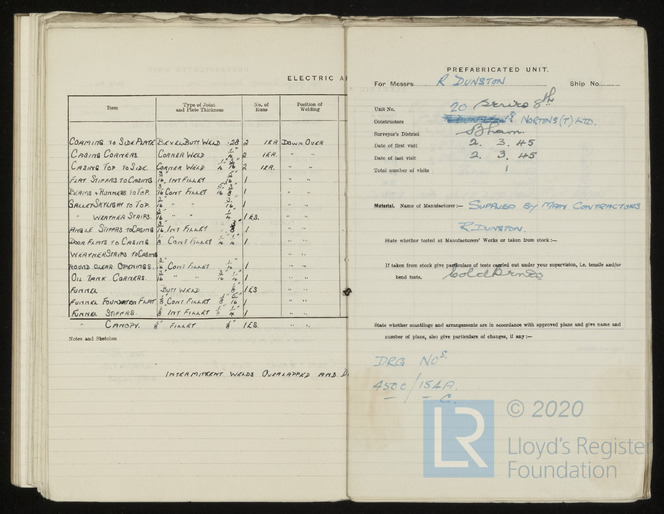 ELECTRIC A
Item Type of Joint and Plate Thickness No. of Runs Position of Welding
COAMING TO SIDE PLATE BEVEL BUTT WELD .28 2 1 RR DOWN OVER
CASING CORNERS. CORNER WELD 2 1RR. " "
CASING TOP TO SIDE. CORNER WELD 2 1RR. " "
FLAT STIFFRS TO CASING INT FILLET 1 " "
BEAMS & RUNNERS TO TOP. CONT FILLET 1 " "
SKYLIGHT TO TOP. " " 1 " "
" WEATHER STRIPS. " " 1 RS. " "
ANGLE STIFFRS TO CASING INT FILLET 1 " "
DOOR FLATS TO CASING CONT FILLET 1 " "
WEATHER STRIPS TO CASING
ROUND CLEAR OPENINGS. CONT FILLET 1 " "
OIL TANK CORNERS. " " 1 " "
FUNNEL BUTT WELD 1 " "
FUNNEL FOUNDATION FLAT CONT FILLET 1 " "
FUNNEL STIFFRS. INT FILLET 1 " "
" CANOPY. FILLET " "
Notes and Sketches
INTERMITTENT WELDS OVERLAPPED AND
PREFABRICATED UNIT.
For Messrs R DUNSTON Ship No.
Unit No. 20 Series 8th
Constructors NORTONS (T) LTD.
Surveyor's District B'ham
Date of first visit 2. 3. 45
Date of last visit 2. 3. 45
Total number of visits 1
Material. Name of Manufacturer:— SUPPLIED BY MAIN CONTRACTORS
R. DUNSTON.
State whether tested at Manufacturers' Works or taken from stock:—
If taken from stock give particulars of tests carried out under your supervision, i.e. tensile and/or
bend tests, Cold Bends
State whether scantlings and arrangements are in accordance with approved plans and give name and
number of plans, also give particulars of changes, if any:—
DRG NOs
4500/154A.
— — C.
© 2020
LR
Lloyd's Register
Foundation